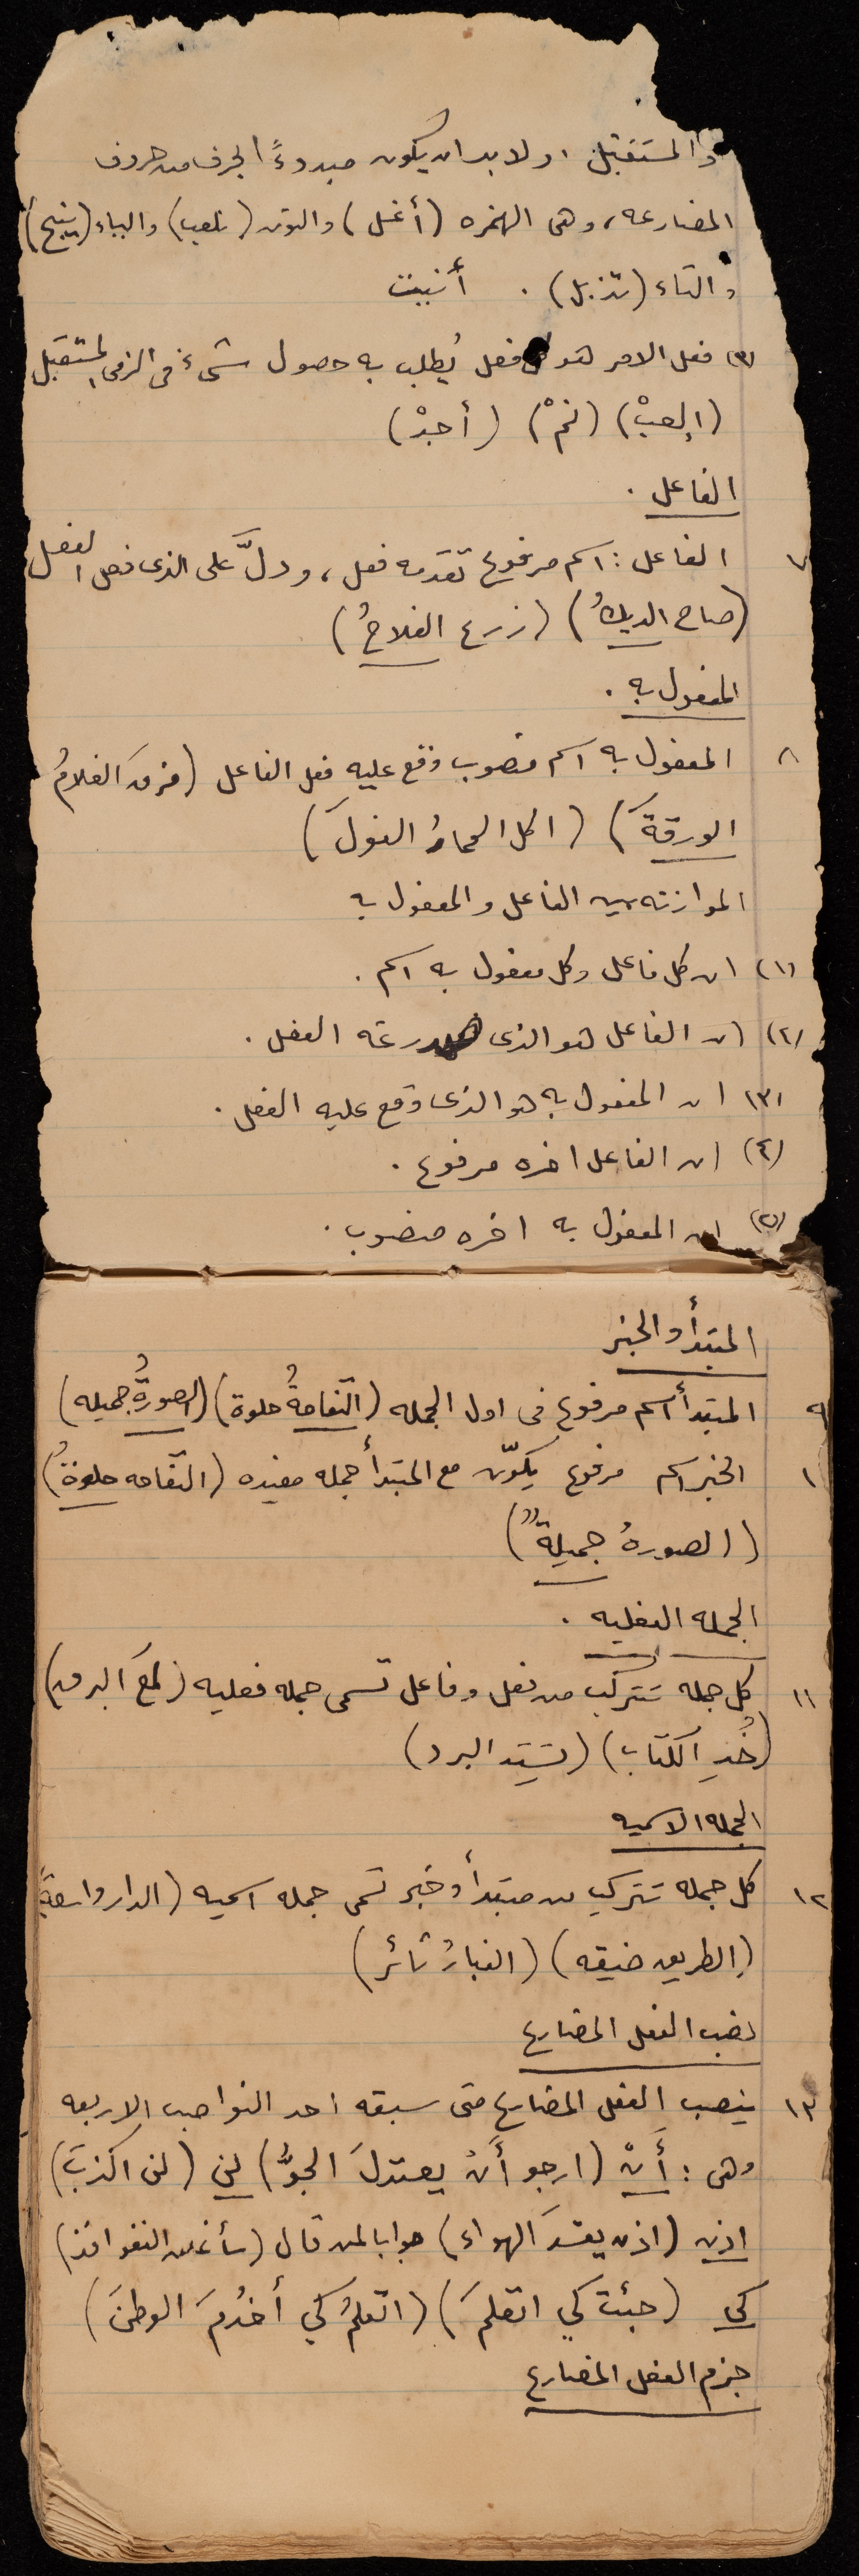 والمستقبل، ولا بد ان يكون مبدوءً الحرف من حروف
المضارعه، وهى الهمزه (أغسل) والنون (نلعب) والياء (ينبح)
والتاء (تذبل). أنيت
(٣) فعل الامر هو فعل يُطلب به حصول شىء فى الزمن المستقبل
(إلعبْ) (نمْ) (أجدْ)
الفاعل.
٧ الفاعل: اسم مرفوع تقدمه فعل، ودلَّ على الذى فعل الفعل
(صاح الديكُ) (زرع الفلاحُ)
المفعول به.
٨ المفعول به اسم منصوب وقع عليه فعل الفاعل (مزقَ الغلامُ
الورقةَ) (اكل الحمارُ الفولَ)
الموازنه بين الفاعل والمفعول به
(١) ان كل فاعل وكل مفعول به اسم.
(٢) ان الفاعل هو الذى صدر عنه الفعل.
(٣) ان المفعول به هو الذى وقع عليه الفعل.
(٤) ان الفاعل اخره مرفوع.
(٥) ان المفعول به اخره منصوب.
المبتدأ والخبر
٩ المبتدأ اسم مرفوع فى اول الجمله (التفاحةُ حلوة) (الصورةُ جميله)
١ الخبر اسم مرفوع يكوّن مع المبتدأ جمله مفيده (التفاحه حلوةٌ)
(الصورهُ جميلةٌ)
الجمله الفعليه.
١١ كل جمله تتركب من فعل وفاعل تسمى جمله فعليه (لمعَ البرق)
(خُذِ الكتاب) (يشتد البرد)
الجمله الاسميه
١٢ كل جمله تتركب من مبتدأ وخبر تسمى جمله اسميه (الدار واسعةٌ)
(الطريق ضيقه) (الغبارُ ثائر)
نصب الفعل المضارع
١٣ ينصب الفعل المضارع متى سبقه احد النواصب الاربعه
وهى: أَنْ (ارجو أَنْ يعتدلَ الجوُّ) لن (لن اكذبَ)
اذن (اذن يفسدَ الهواء) جوابا لمن قال (سأغلق النوافذ)
كي (جئت كي اتعلمَ) (اتعلمُ كي أخدُمَ الوطنَ)
جزم الفعل المضارع